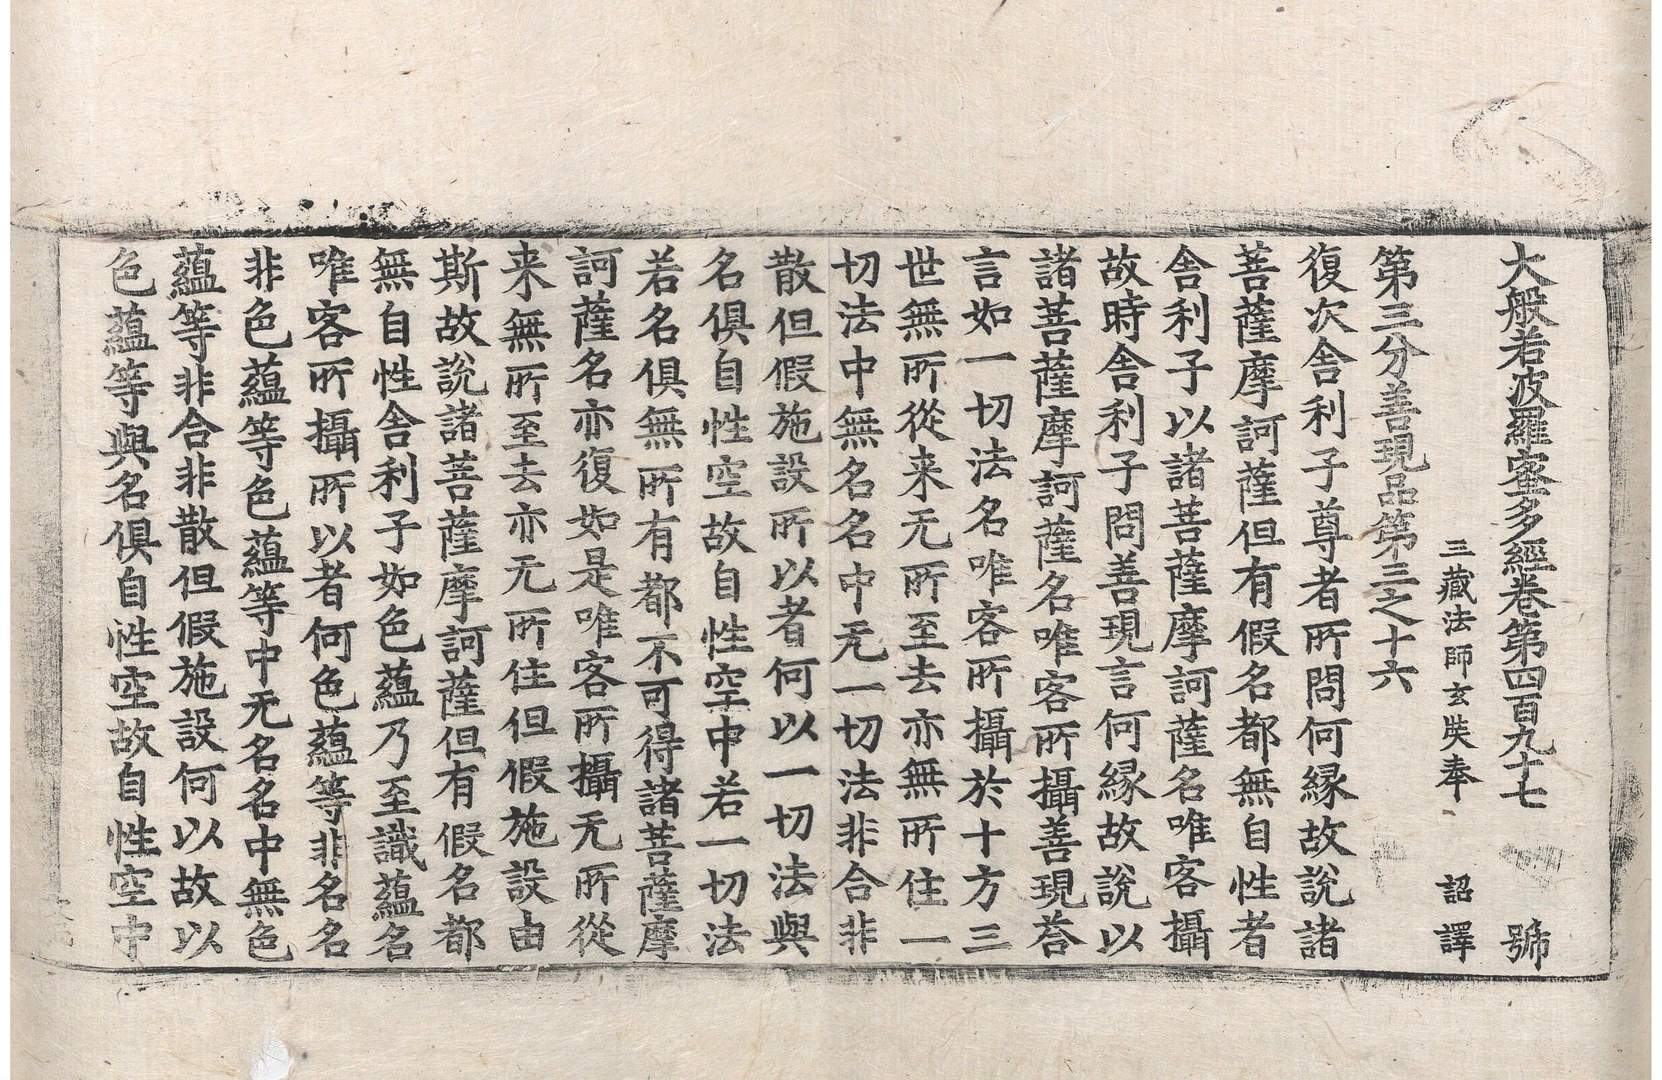 大般若波羅蜜多經卷第四百九十七　號
三藏法師玄奘奉　詔譯
第三分善現品第三之十六
復次舍利子尊者所問何緣故說諸
菩薩摩訶薩但有假名都無自性者
舍利子以諸菩薩摩訶薩名唯客攝
故時舍利子問善現言何緣故說以
諸菩薩摩訶薩名唯客所攝善現荅
言如一切法名唯客所攝於十方三
世無所從来无所至去亦無所住一
切法中無名名中无一切法非合非
散但假施設所以者何以一切法與
名俱自性空故自性空中若一切法
若名俱無所有都不可得諸菩薩摩
訶薩名亦復如是唯客所攝无所從
来無所至去亦无所住但假施設由
斯故說諸菩薩摩訶薩但有假名都
無自性舍利子如色蘊乃至識蘊名
唯客所攝所以者何色蘊等非名名
非色蘊等色蘊等中无名名中無色
蘊等非合非散但假施設何以故以
色蘊等與名俱自性空故自性空中